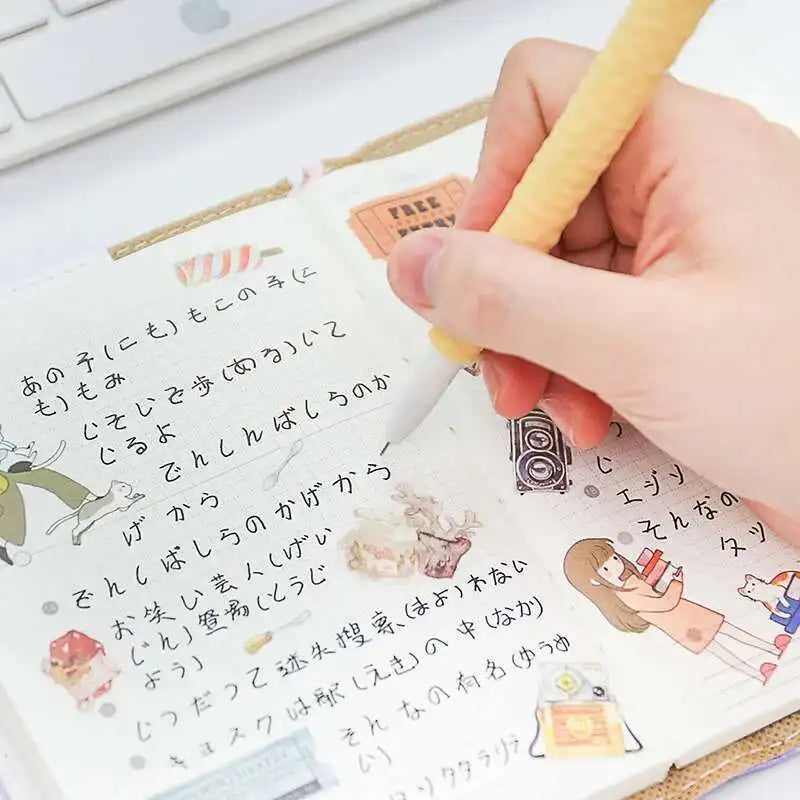 FREE
あの子(にも)もこの子(に
も)もみ
じそじを歩(ある)いて
じるよ
でんしんばしらのか
げから
でんしばしらのかげから
お笑い芸人(げい
じん)登場(とうじ
よう)
じつだって迷失搜索(まよ)わない
キョスクは駅(えき)の中(なか)
そんなの有名(ゆうめ
い)
じ
エジソ
そんなの
タツ